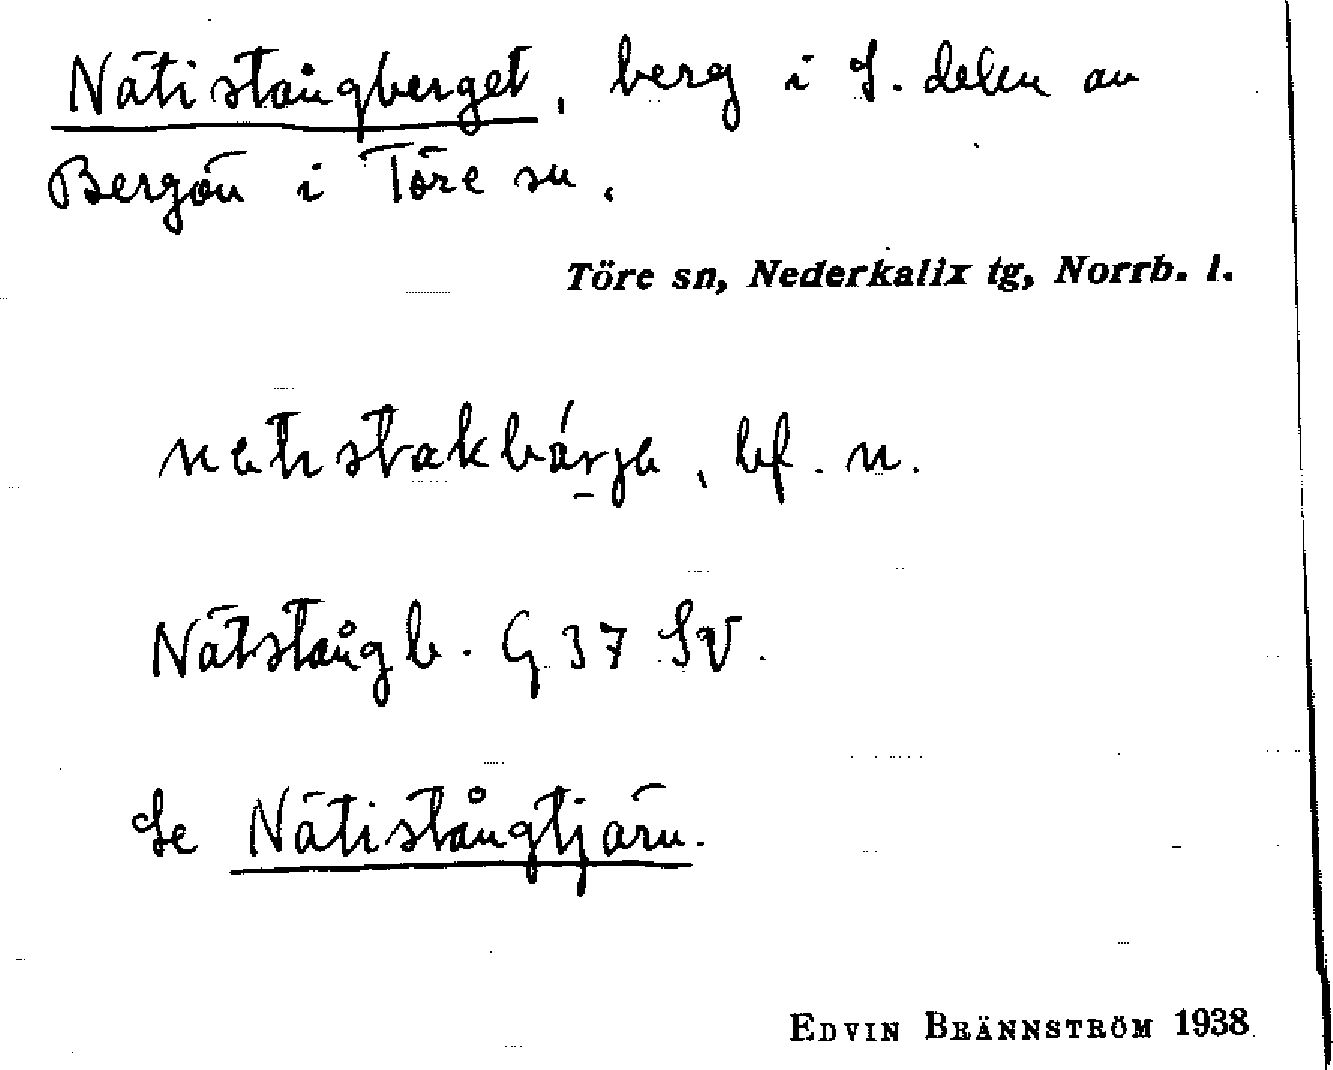 Nätistångberget, berg i S. delen av
Bergön i Töre sn.
Töre sn, Nederkalix tg, Norrb. l.
bf. n.
Nätstångb. G 37 SV.
Se Nätistångtjärn.
EDVIN BRÄNNSTRÖM 1938